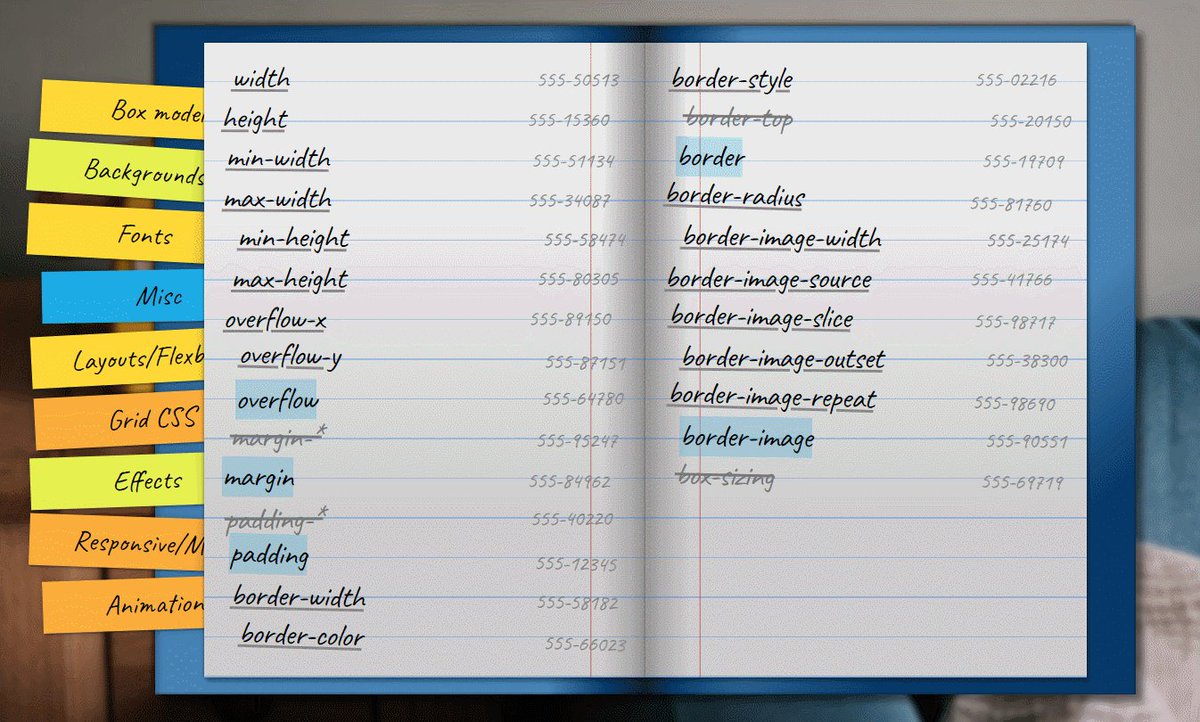 Box model
Backgrounds
Fonts
Misc
Layouts/Flexb
Grid CSS
Effects
Responsive/M
Animation
width 555-50513
height 555-15360
min-width 555-51134
max-width 555-34087
min-height 555-58474
max-height 555-80305
overflow-x 555-89150
overflow-y 555-87151
overflow 555-64780
margin-* 555-95247
margin 555-84962
padding-* 555-40220
padding 555-12345
border-width 555-58182
border-color 555-66023
border-style 555-02216
border-top 555-20150
border 555-19709
border-radius 555-81760
border-image-width 555-25174
border-image-source 555-41766
border-image-slice 555-98717
border-image-outset 555-38300
border-image-repeat 555-98690
border-image 555-90551
box-sizing 555-69719